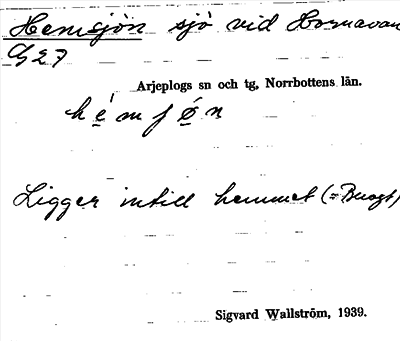 Hemsjön sjö vid Hornavan
G 27
Arjeplogs sn och tg, Norrbottens län.
hémʃøn
Ligger intill hemmet (=Buogt)
Sigvard Wallström, 1939.